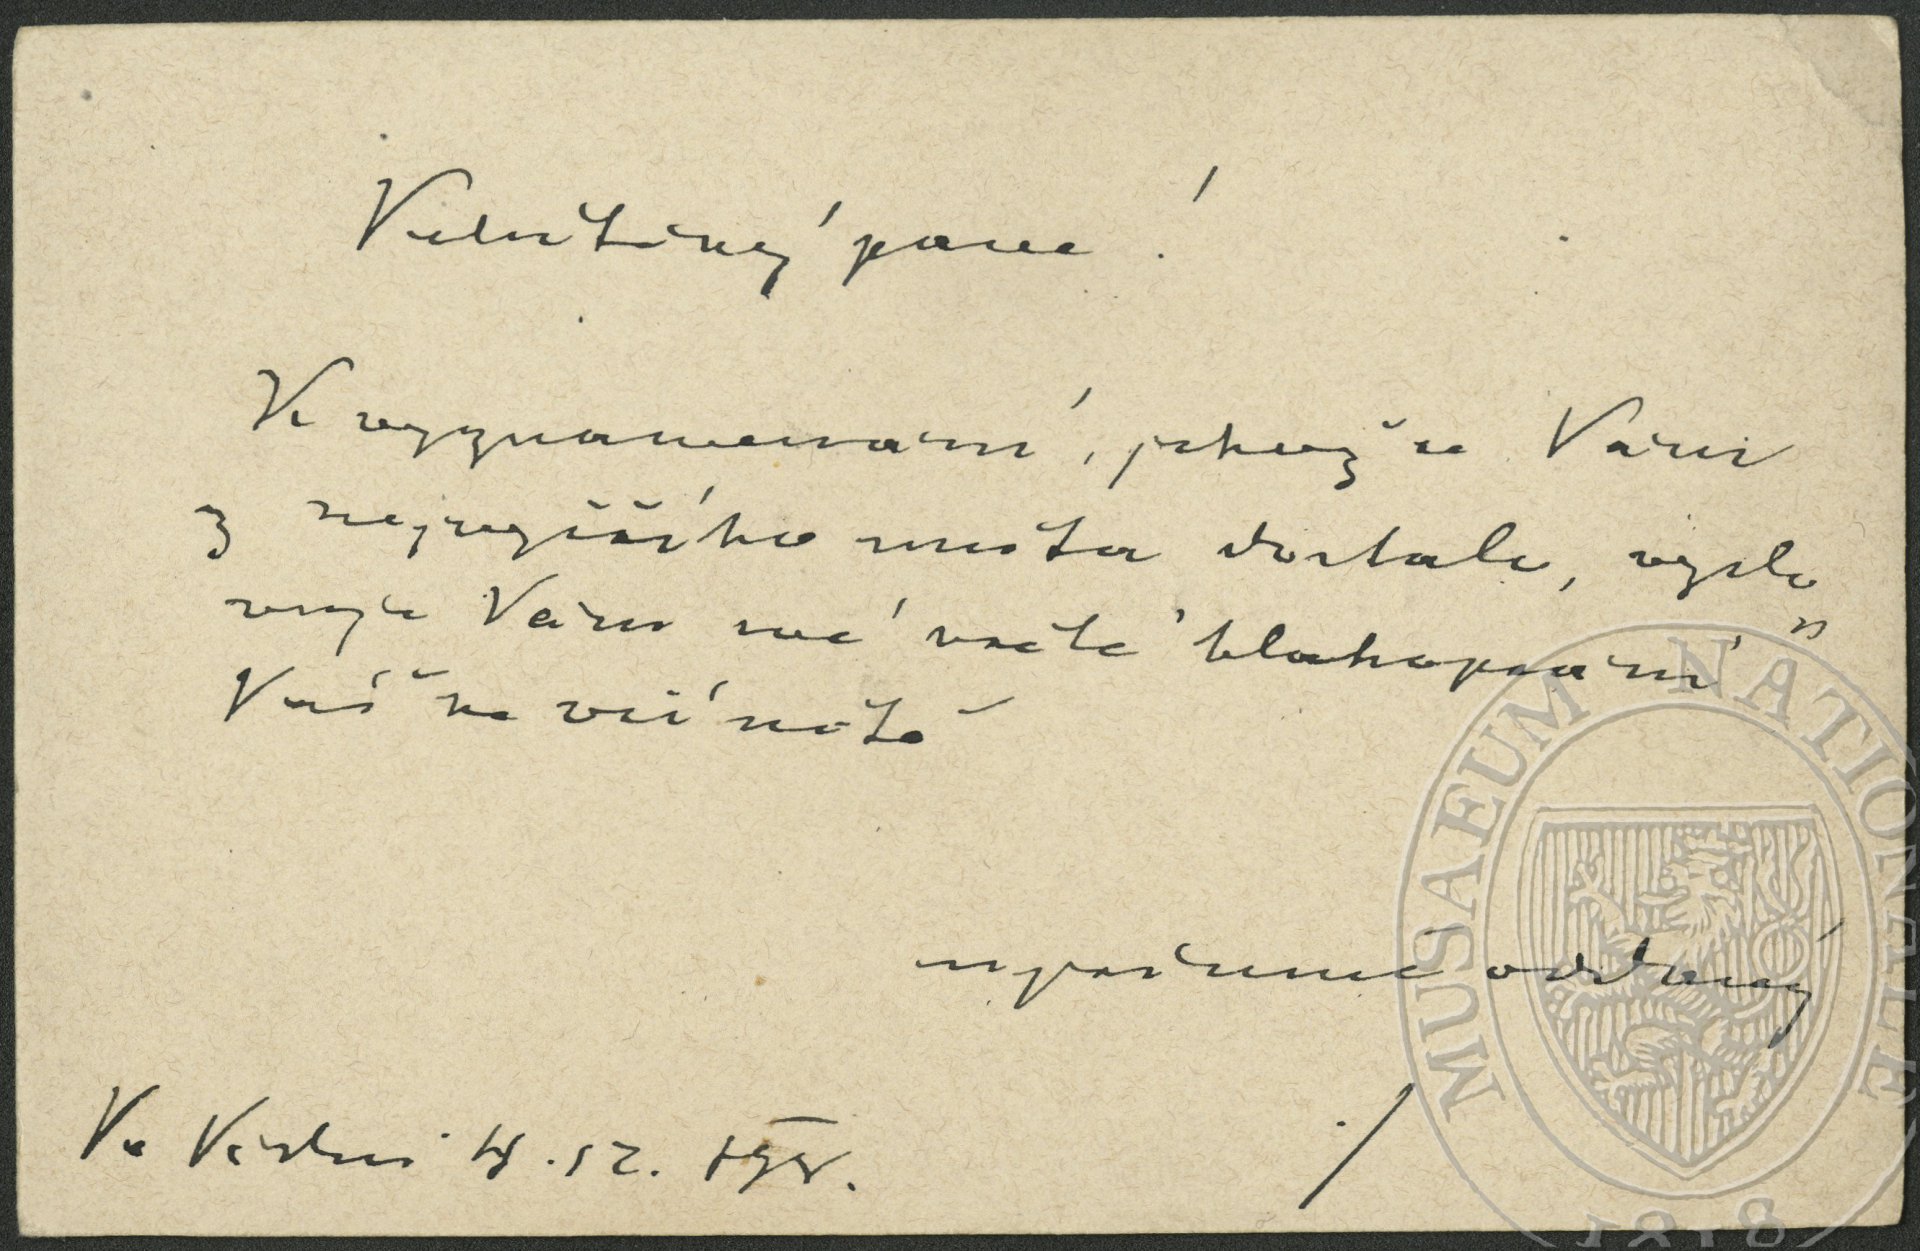 Velectěný pane!
K vyznamenání, jehož se Vám
z nejvyššího místa dostalo, vyslo
vuji Vám své vřelé blahopřání
Váš
upřímně oddaný
Ve Vídni 12.
MUSAEUM NATIONALE
1818